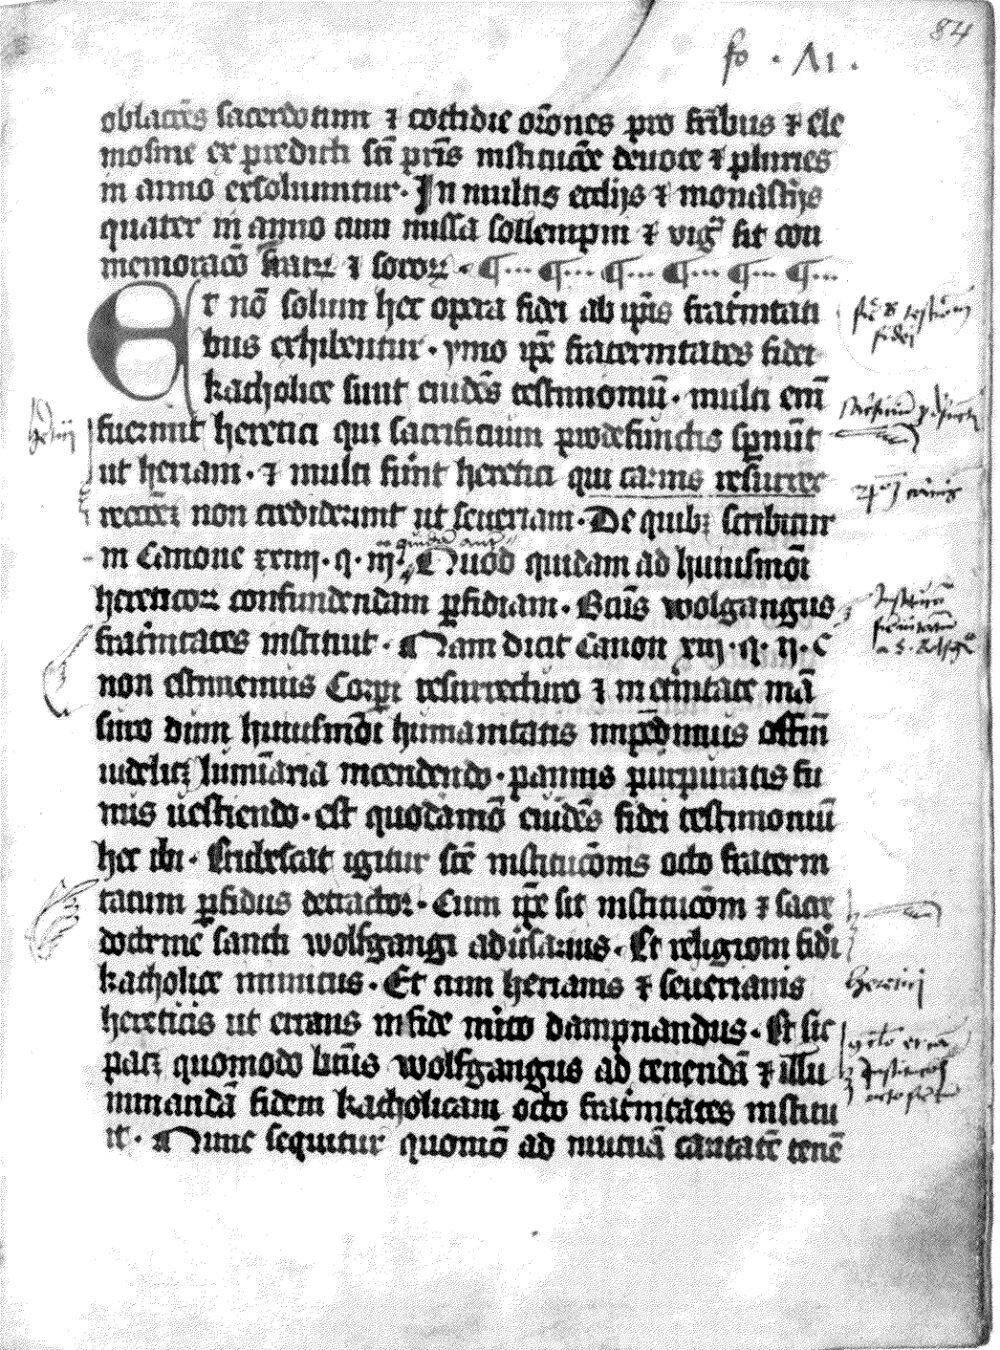 84
fo . VI .
oblacōes sacerdotum ⁊ cottidie orōnes pro frībus ⁊ ele
mosine ex predicti sci pr̄is institucōe deuote ⁊ pluries
in anno exsoluuntur. In multis eccl̄ijs ⁊ monast̄ijs
quater in anno cum missa sollempni ⁊ vig̓ fit com
memoracō fratꝝ ⁊ soroꝝ .
Et nō solum hec opera fidei ab ip̄is frat̓nitati
bus exhibentur. ymo ip̄e fraternitates fidei
katholice sunt euidēs testimoniū. multi eni̅
fuerunt heretici qui sacrificium pro defunctis sp̄nūt
ut heriani. ⁊ multi fūnt heretici qui carnis resurrec
non crediderunt ut seueriani. De quibꝫ scribitur
in Canone xxiiij. q. iij. Quod quidam ad huiusmōi
hereticoꝝ confundendam ꝑfidiam. Bēus wolgangus
frat̓nitates instituit. Nam dicit Canon xiij. q. ij. c
non estimemus Corpī resurrecturo ⁊ in et̓nitate mā
suro dum huiusmōi humanitatis impēdimus offiīn
uidelicꝫ luminaria incendendo. pannis purpuratis fu
nus uestiendo. est quodamō euidēs fidei testimoniū
hec ibi. Erubescat igitur scē institucōnis octo fraterni
tatum ꝑfidus detractor. Cum ip̄e sit institucōni ⁊ sacre
doctrine sancti wolfgangi adūsarius. Et religioni fidei
katholice inimicus. Et cum herianis ⁊ seuerianis
hereticis ut errans in fide mīto dampnandus. Et sic
patꝫ quomodo bēus wolfgangus ad tenendā ⁊ illu
minandā fidem katholicam octo frat̓nitates institu
it. Nunc sequitur quomō ad mutuā caritatē tenē